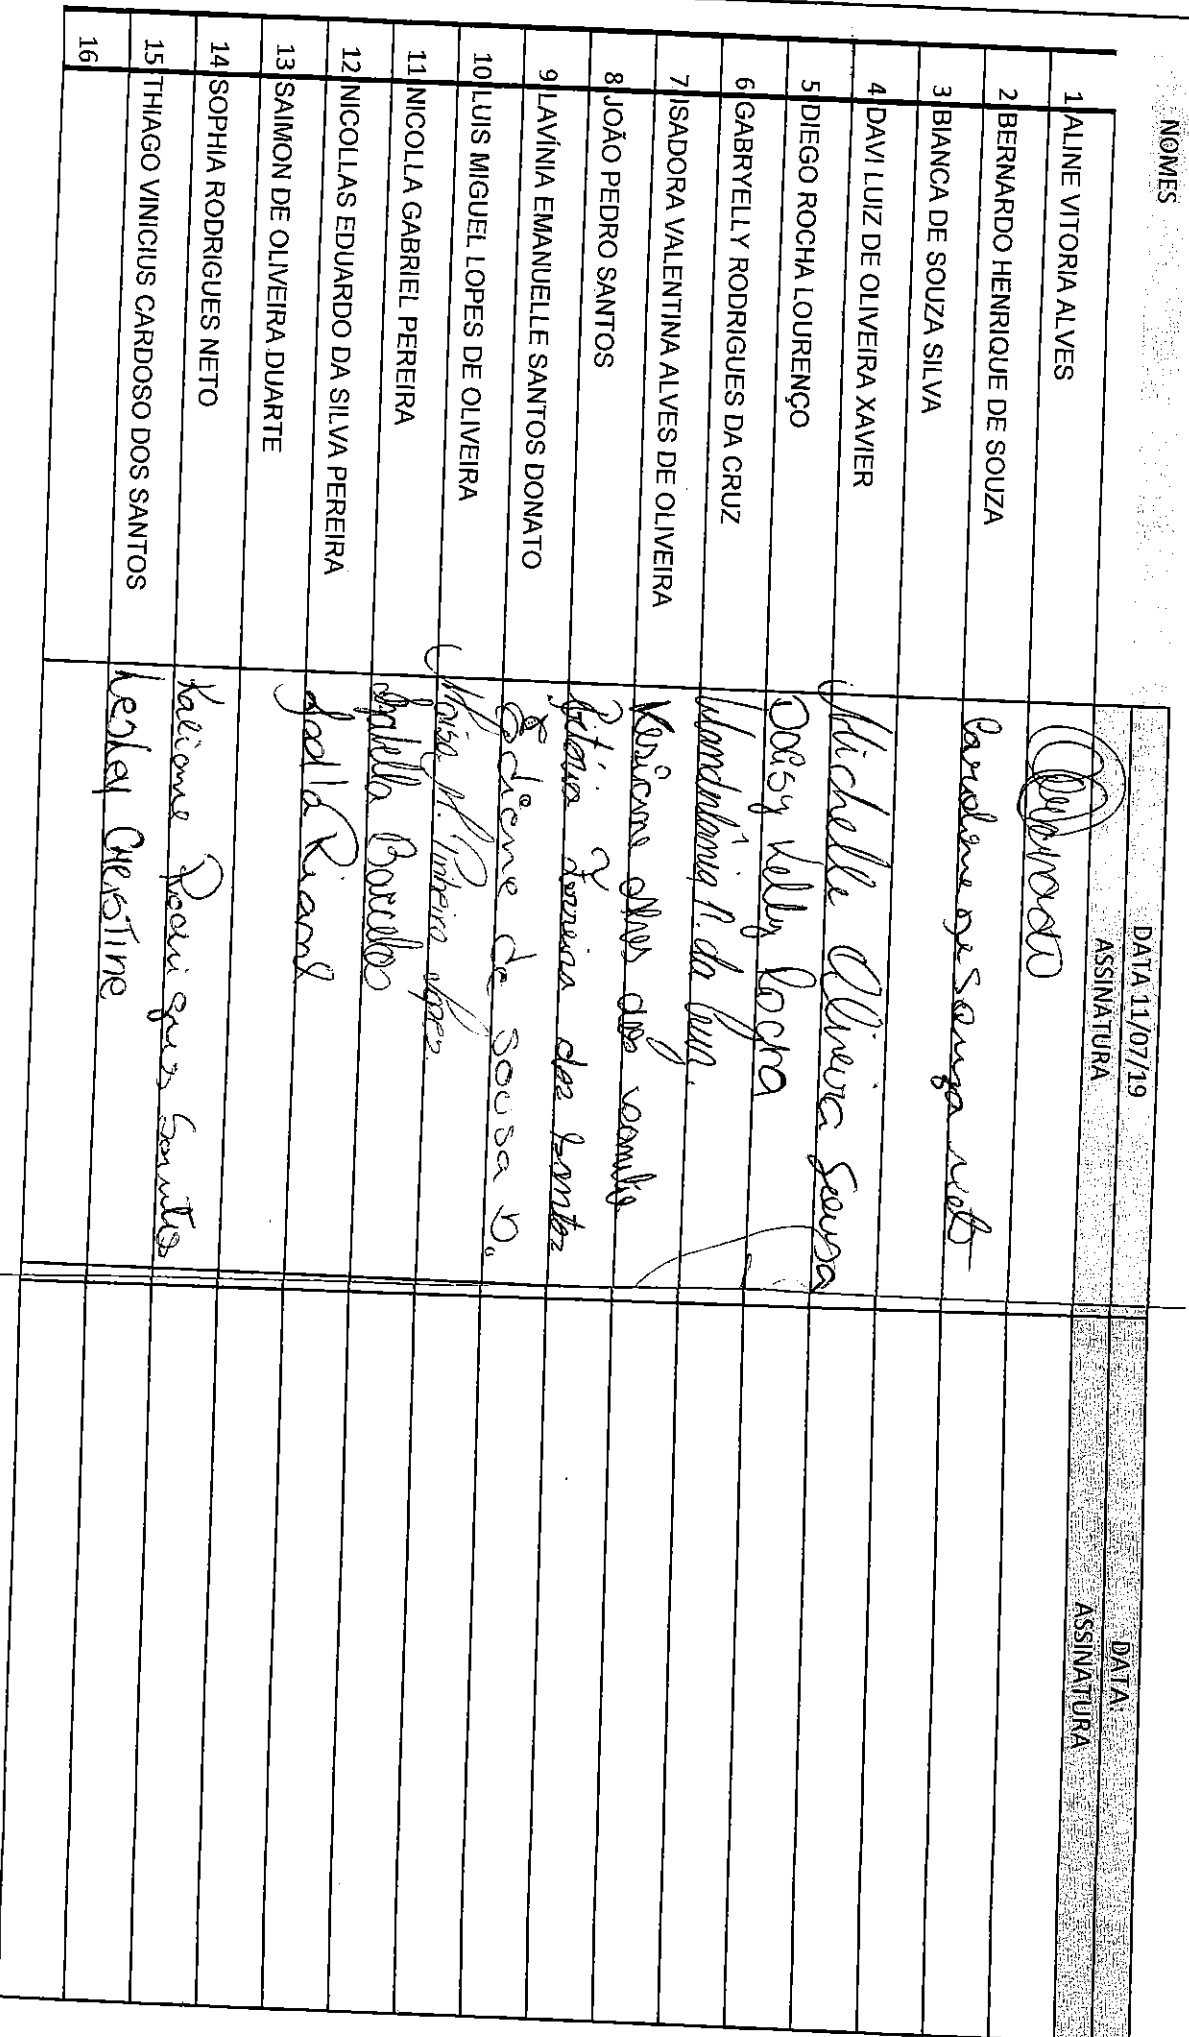 NOMES DATA 11/07/19 DATA:
ASSINATURA ASSINATURA
1 ALINE VITORIA ALVES
2 BERNARDO HENRIQUE DE SOUZA Caroline de Souza
3 BIANCA DE SOUZA SILVA
4 DAVI LUIZ DE OLIVEIRA XAVIER Michelle Oliveira Sousa
5 DIEGO ROCHA LOURENÇO Daisy Kelly Rocha
6 GABRYELLY RODRIGUES DA CRUZ R. da
7 ISADORA VALENTINA ALVES DE OLIVEIRA Kesiane Alves dos
8 JOÃO PEDRO SANTOS Ferreira dos Santos
9 LAVÍNIA EMANUELLE SANTOS DONATO Ediane de Sousa D.
10 LUIS MIGUEL LOPES DE OLIVEIRA Pinheiro Lopes
11 NICOLLA GABRIEL PEREIRA Isabella Barcelos
12 NICOLLAS EDUARDO DA SILVA PEREIRA
13 SAIMON DE OLIVEIRA DUARTE
14 SOPHIA RODRIGUES NETO Kaliane Rodrigues Santos
15 THIAGO VINICIUS CARDOSO DOS SANTOS Lesley Cristine
16